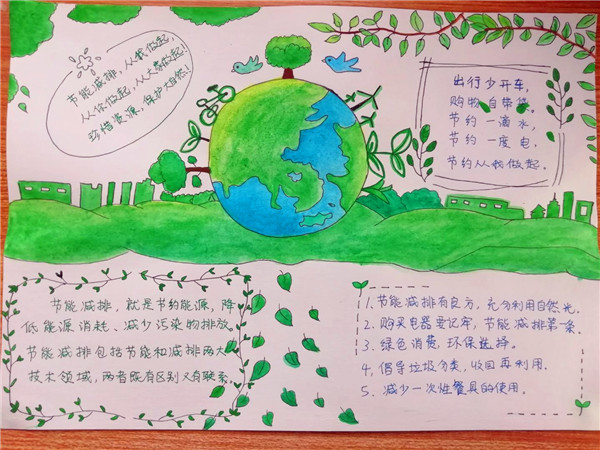 节能减排，从我做起，
从你做起，从大家做起！
珍惜资源，保护大自然！
出行少开车，
购物自带袋。
节约一滴水，
节约一度电，
节约从我做起。
节能减排，就是节约能源，降
低能源消耗、减少污染物排放。
节能减排包括节能和减排两大
技术领域，两者既有区别又有联系
1. 节能减排有良方，充分利用自然光。
2. 购买电器要记牢，节能减排第一条。
3. 绿色消费，环保选择。
4. 倡导垃圾分类、收回再利用。
5. 减少一次性餐具的使用。